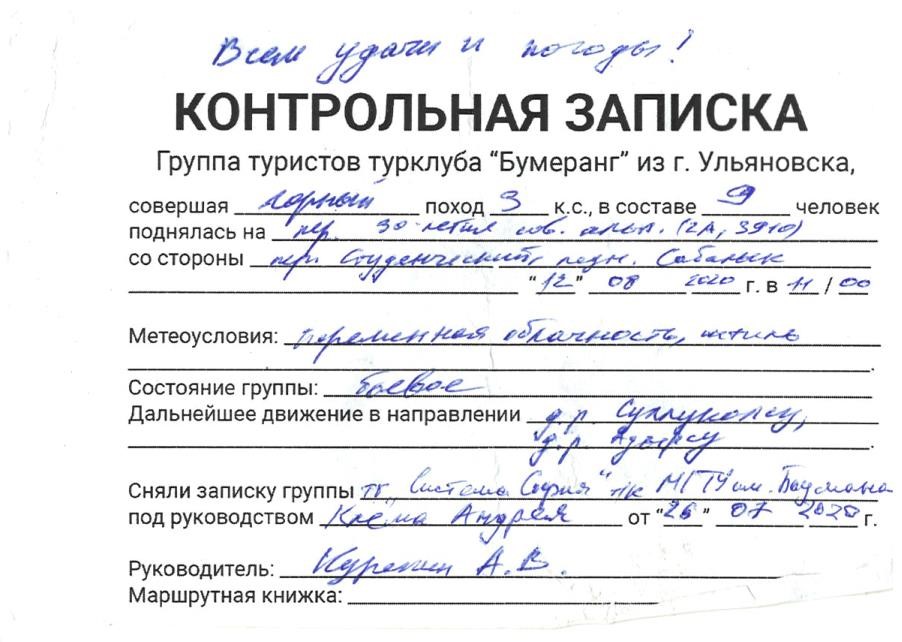 Всем удачи и погоды!
КОНТРОЛЬНАЯ ЗАПИСКА
Группа туристов турклуба “Бумеранг” из г. Ульяновска,
совершая горный поход 3 к.с., в составе 9 человек
поднялась на пер. 30-летия сов. альп. (2А, 3910)
со стороны пер. Студенческий, ледн. Сабалык
“12” 08 2020 г. в 11 / 00
Метеоусловия: переменная облачность, штиль
Состояние группы: боевое
Дальнейшее движение в направлении д.р. Суллуколсу,
д.р. Адырсу
Сняли записку группы тг „Система София“ т/к МГТУ им. Баумана
под руководством Андрея от “26” 07 2020 г.
Руководитель: А.В.
Маршрутная книжка: